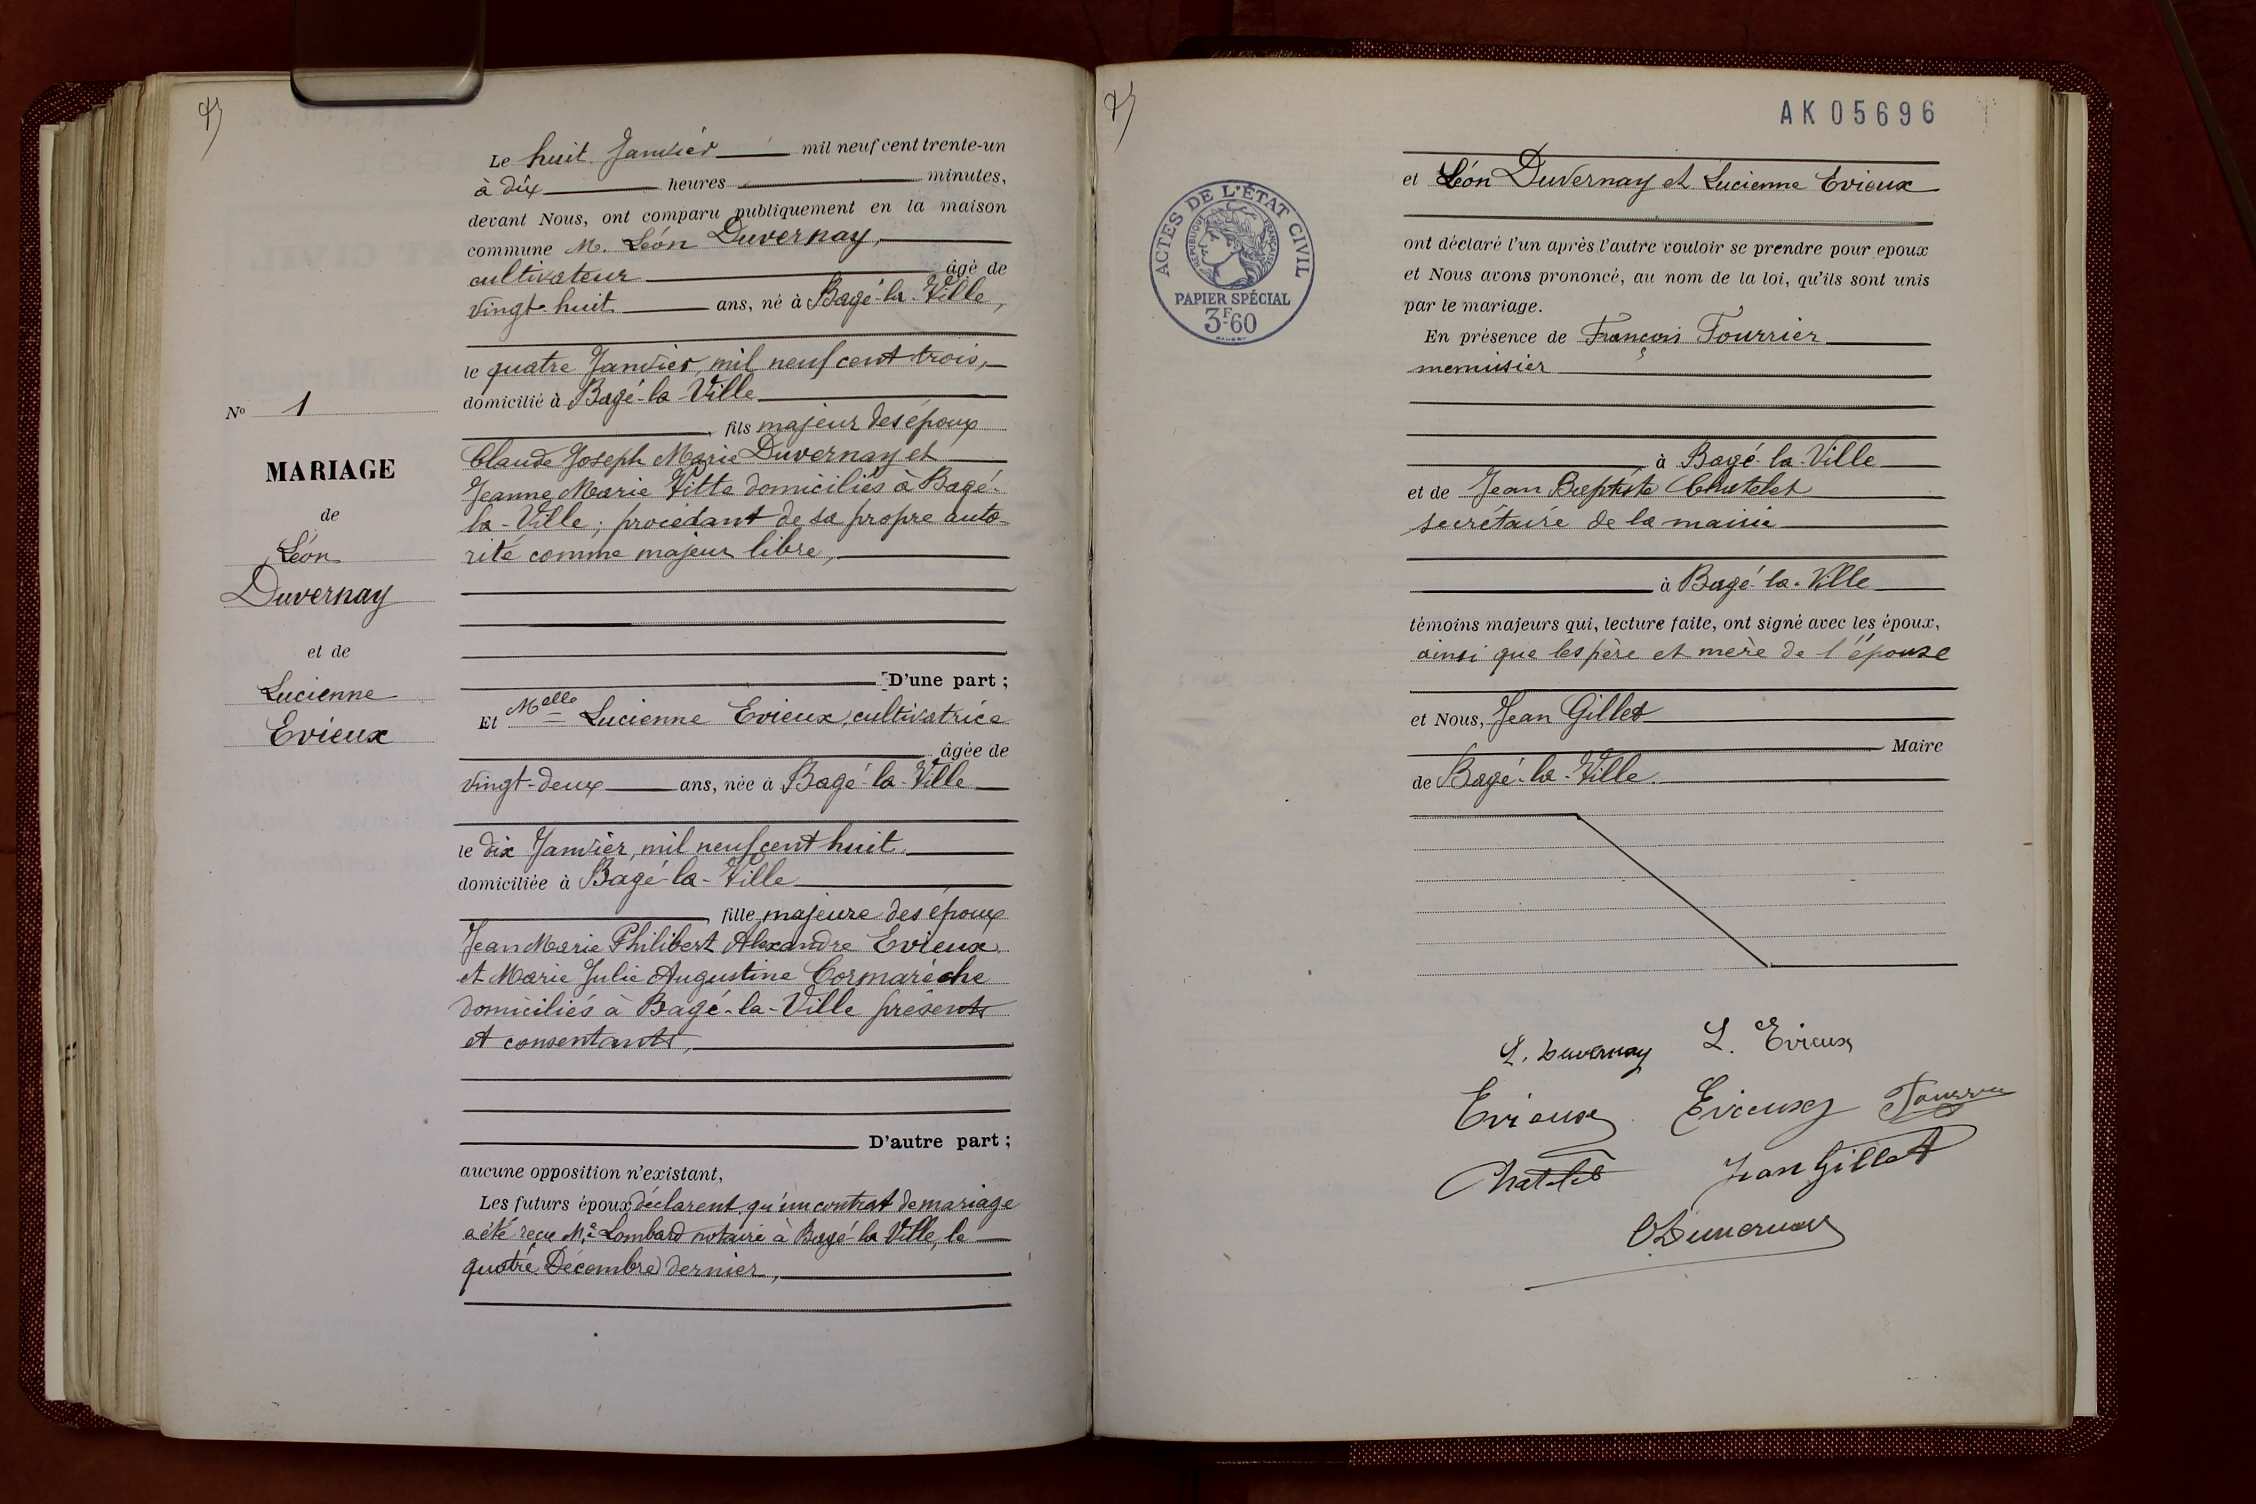 N° 1
MARIAGE
de
Léon
Duvernay
et de
Lucienne
Evieux
Le huit Janvier mil neuf cent trente-un
à dix heures minutes,
devant Nous, ont comparu publiquement en la maison
commune M. Léon Duvernay,
cultivateur âgé de
vingt-huit ans, né à Bagé-la-Ville,
le quatre Janvier, mil neuf cent trois,
domicilié à Bagé-la-Ville
, fils majeur des époux
Claude Joseph Marie Duvernay et
Jeanne Marie Vitte domiciliés à Bagé-
la-Ville; procédant de sa propre auto-
rité comme majeur libre,
D'une part;
Et Melle Lucienne Evieux, cultivatrice
âgée de
vingt-deux ans, née à Bagé-la-Ville
le dix Janvier, mil neuf cent huit
domiciliée à Bagé-la-Ville
, fille majeure des époux
Jean Marie Philibert Alexandre Evieux
et Marie Julie Augustine Cormarèche
domiciliés à Bagé-la-Ville présents
et consentants,
D'autre part;
aucune opposition n'existant,
Les futurs époux déclarent qu'un contrat de mariage
a été reçu Me Lombard notaire à Bagé-la-Ville, le
quatre Décembre dernier,
AK05696
ACTES DE L'ÉTAT CIVIL
RÉPUBLIQUE FRANÇAISE
PAPIER SPÉCIAL
3F-60
et Léon Duvernay et Lucienne Evieux
ont déclaré l'un après l'autre vouloir se prendre pour epoux
et Nous avons prononcé, au nom de la loi, qu'ils sont unis
par le mariage.
En présence de François Fourrier
menuisier
à Bagé-la-Ville
et de Jean Baptiste Chatelet
secrétaire de la mairie
à Bagé-la-Ville
témoins majeurs qui, lecture faite, ont signé avec les époux,
ainsi que les père et mère de l'épouse
et Nous, Jean Gillet
Maire
de Bagé-la-Ville.
L. Duvernay L. Evieux
Evieux Evieux
Jean Gillet